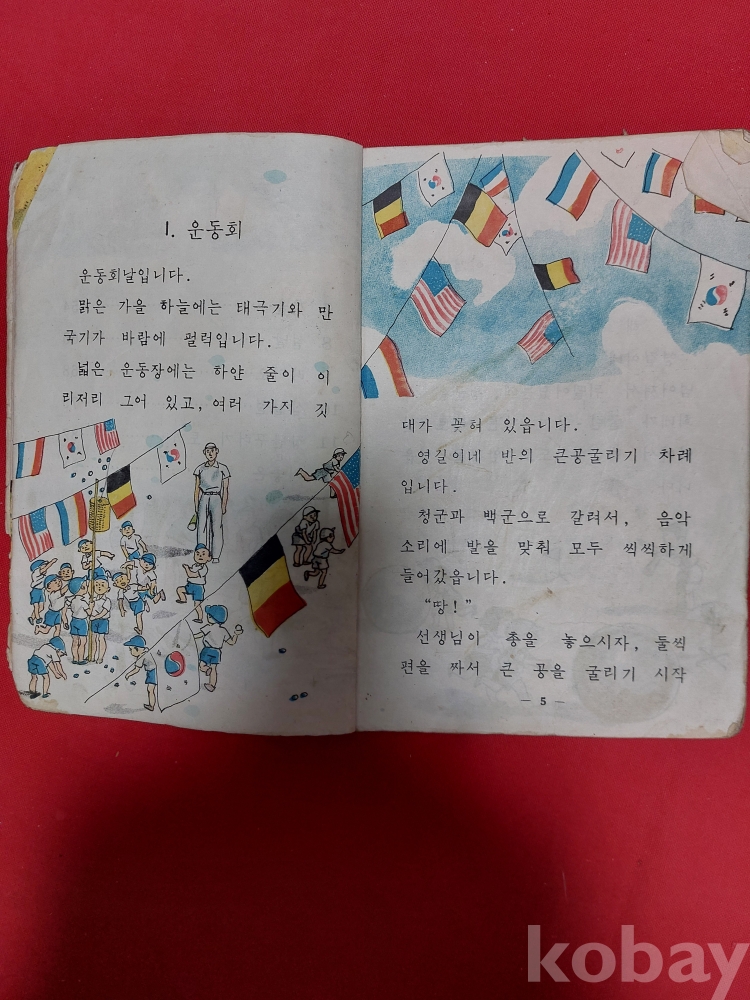 1. 운동회
운동회날입니다.
맑은 가을 하늘에는 태극기와 만
국기가 바람에 펄럭입니다.
넓은 운동장에는 하얀 줄이 이
리저리 그어 있고, 여러 가지 깃
대가 꽂혀 있읍니다.
영길이네 반의 큰공굴리기 차례
입니다.
청군과 백군으로 갈려서, 음악
소리에 발을 맞춰 모두 씩씩하게
들어갔읍니다.
“땅!”
선생님이 총을 놓으시자, 둘씩
편을 짜서 큰 공을 굴리기 시작
— 5 —
kobay